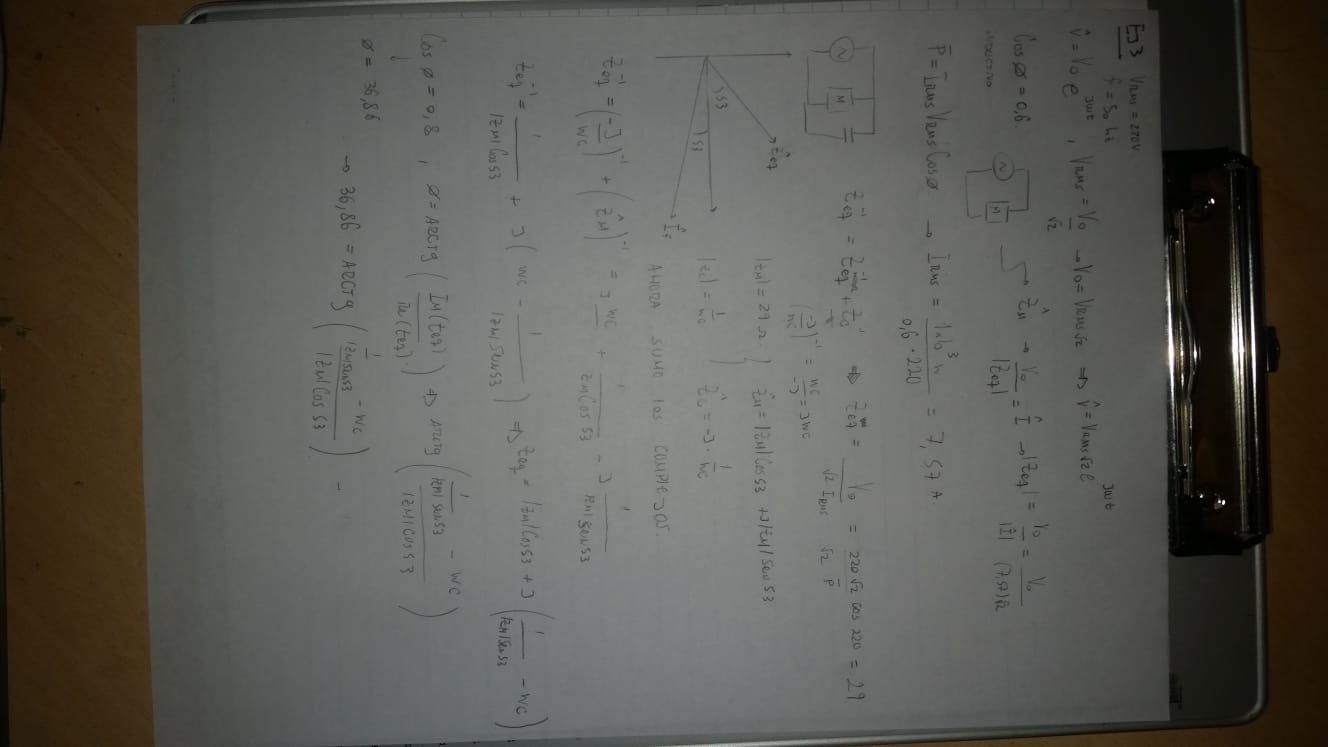 Ej 3 VRMS = 220V
f = 50 Hz
v̂ = V0 e^jwt , VRMS = V0/√2 → V0 = VRMS√2 ⇒ v̂ = VRMS√2 e^jwt
Cos ø = 0,6 ẐM → V0/|Zeq| = Î → |Zeq| = V0/|Î| = V0/(7,57)√2
INDUCTIVO
M
P̄ = IRMS VRMS Cosø → IRMS = 1x10^3 W/(0,6 · 220) = 7,57 A.
Zeq^-1 = Zeq^-1 + Zc^-1 ⇒ Zeq = V0/(√2 IRMS) = 220 √2 cos 220/(√2 P̄) = 29
M
(-J/WC)^-1 = WC/-J = JWC
Ẑeq
|ZM| = 29 Ω ẐM = |ZM| Cos 53 + J|ZM| Sen 53
53
53
|Zc| = 1/WC Ẑc = -J · 1/WC
ÎF
AHORA SUMO LOS COMPLEJOS.
Zeq^-1 = (-J/WC)^-1 + (ẐM)^-1 = J WC + 1/(ZM Cos 53) - J 1/(|ZM| Sen 53)
Zeq^-1 = 1/(|ZM| Cos 53) + J (WC - 1/(|ZM| Sen 53)) ⇒ Zeq = |ZM| Cos 53 + J (1/(|ZM| Sen 53) - WC)
Cos ø = 0,8 , ø = ARCTg (Im(Zeq)/Re(Zeq)) ⇒ ARCTg ((1/(|ZM| Sen 53) - WC)/(|ZM| Cos 53))
↓
ø = 36,86
→ 36,86 = ARCTg ((1/(|ZM| Sen 53) - WC)/(|ZM| Cos 53)) -